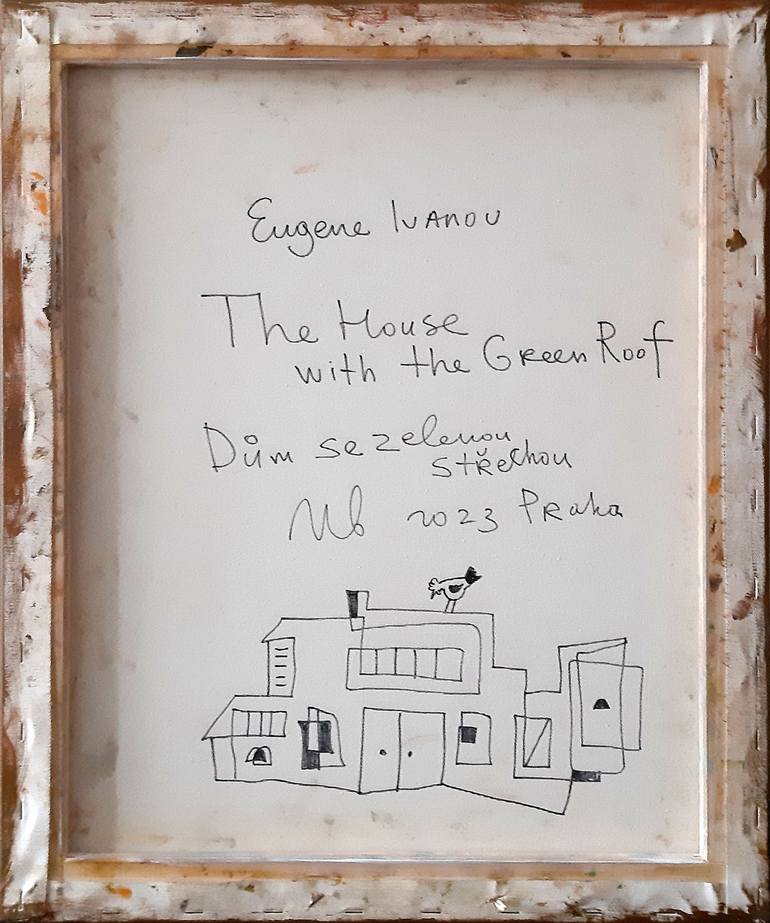 Eugene Ivanov
The House
with the Green Roof
Dům se zelenou
střechou
2023 Praha